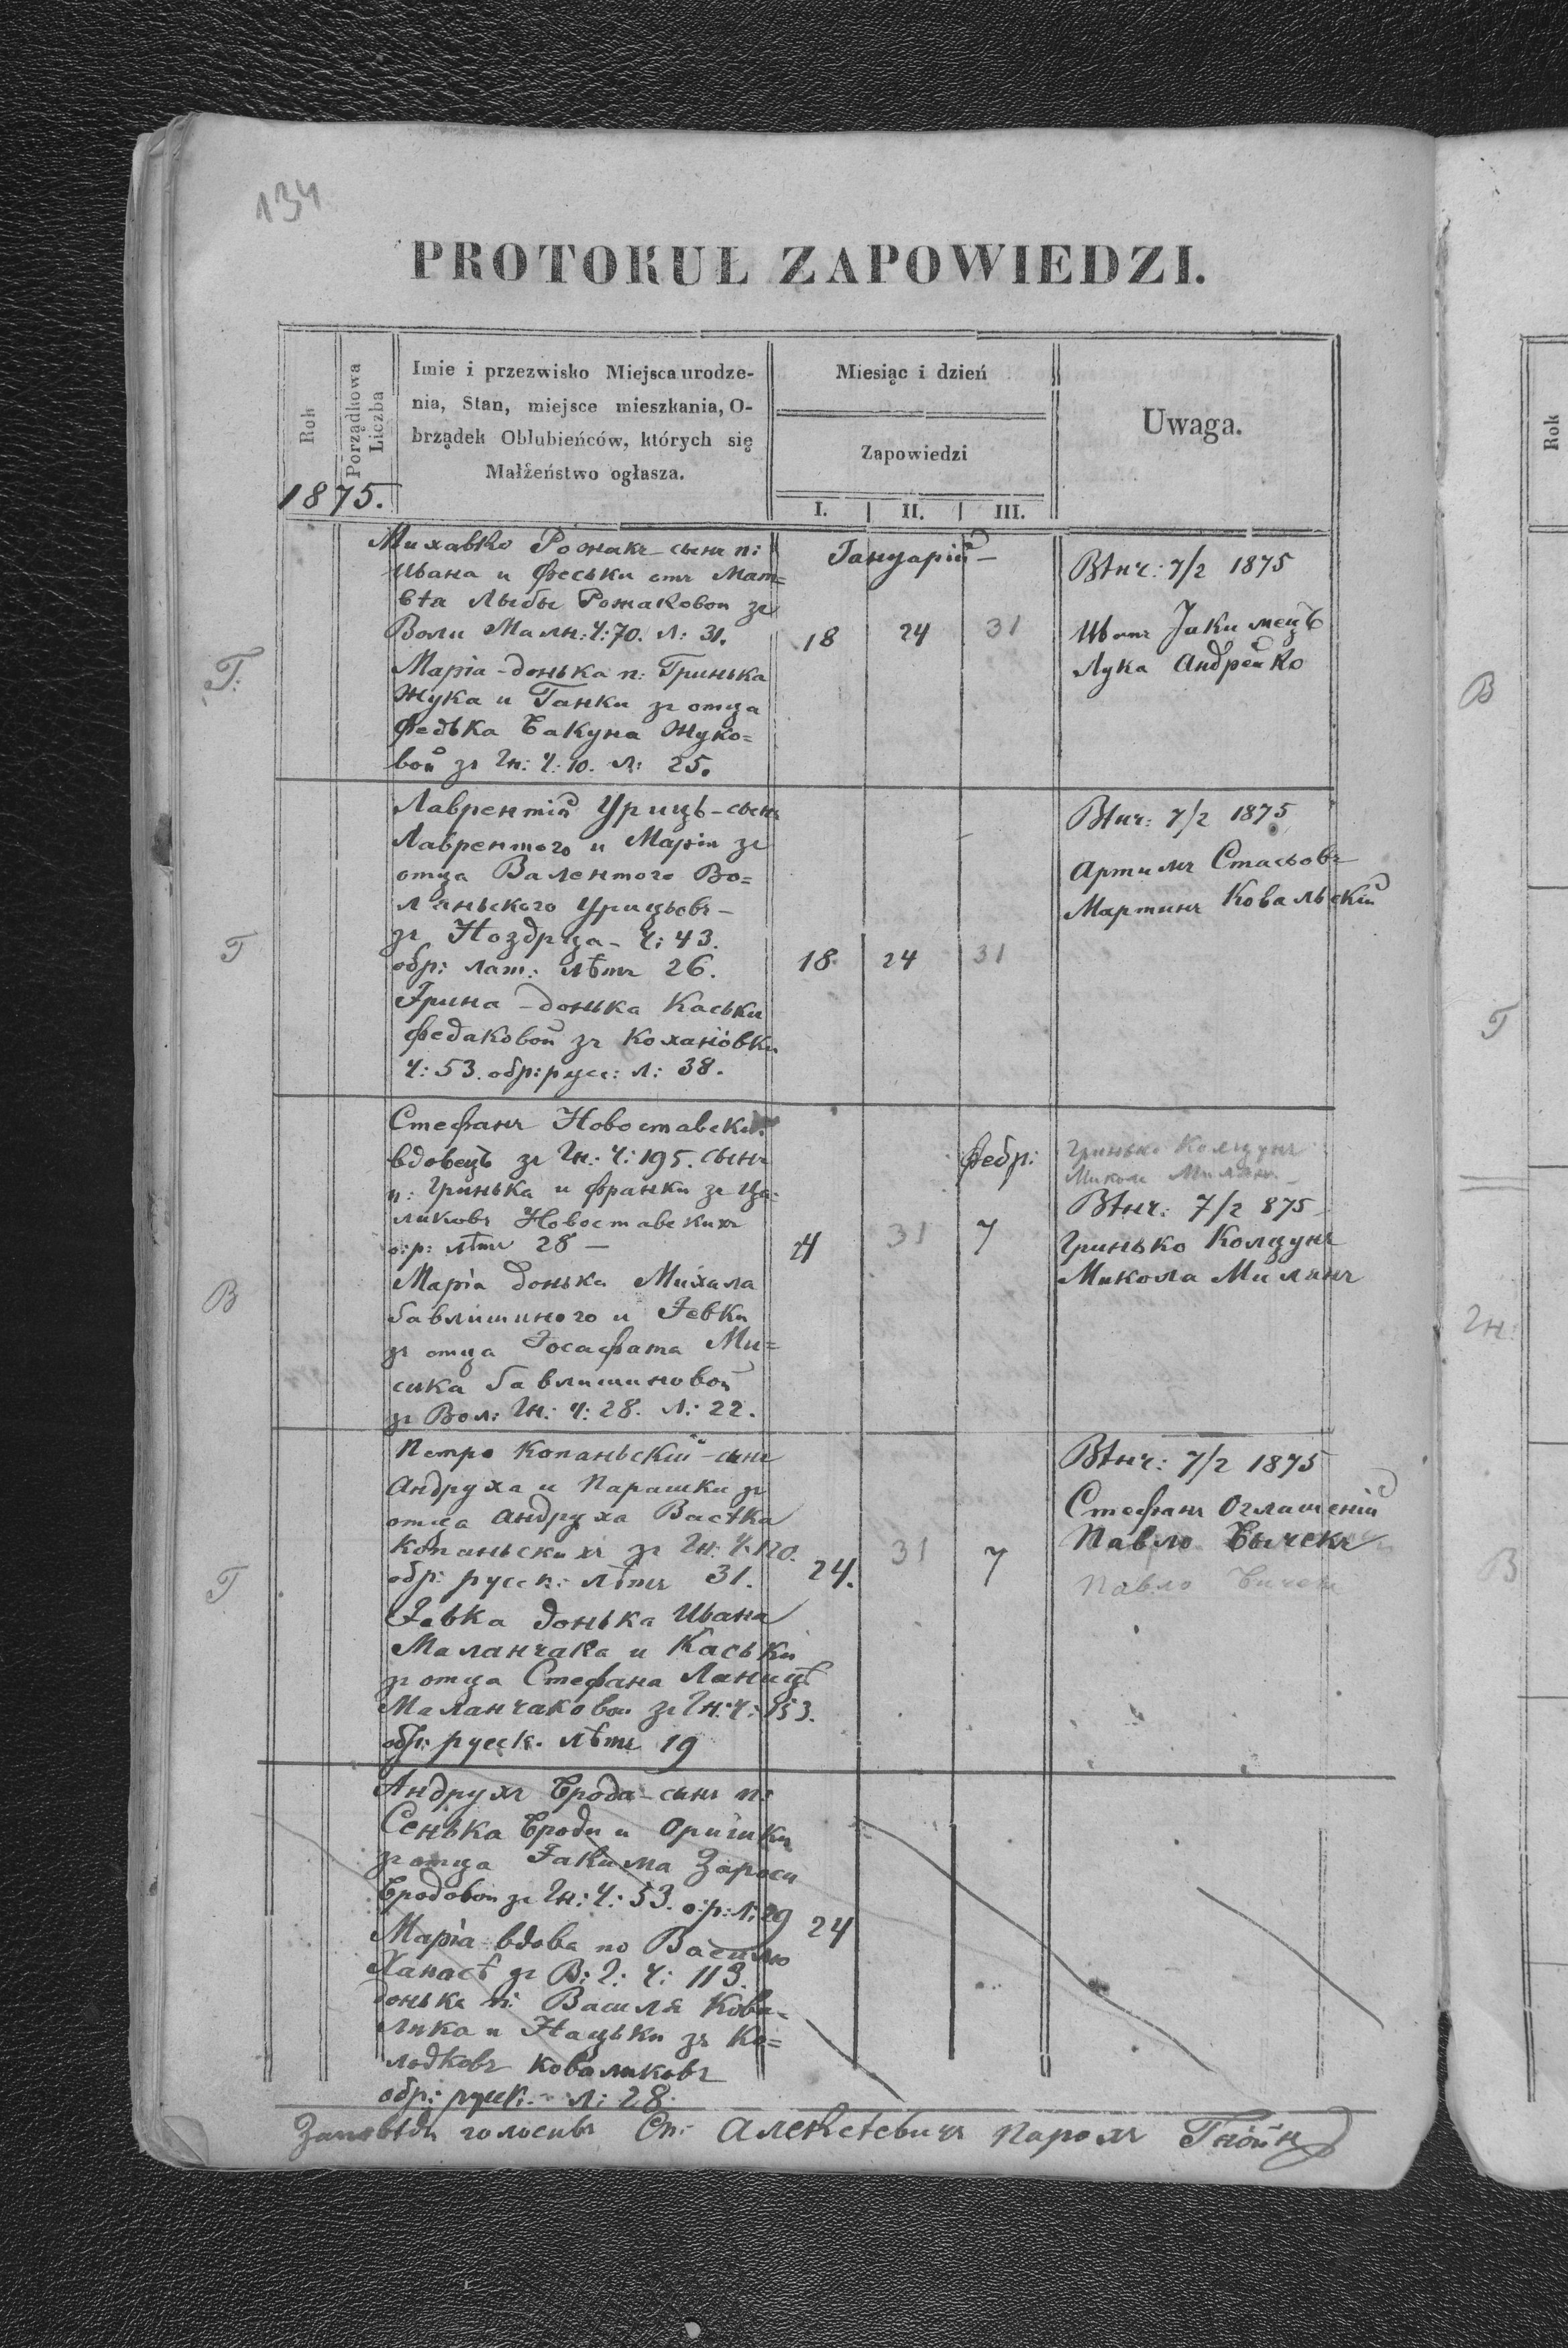 134
PROTOKUŁ ZAPOWIEDZI.
Rok
Porządkowa Liczba
Imie i przezwisko Miejsca urodze-
nia, Stan, miejsce mieszkania, O-
brządek Oblubieńców, których się
Małżeństwo ogłasza.
Miesiąc i dzień
Zapowiedzi
I. II. III.
Uwaga.
1875.
Г:
Михавко Рожакъ - сынъ п:
Ивана и Феськи отъ Мат=
вѣа Лыбы Рожаковои зъ
Воли Малн: Ч: 70. Л: 31.
Маріа - донька п: Гринька
Жука и Ганки зъ отца
Федька Бакуна Жуко=
вои зъ Гн: Ч: 10. Л: 25.
Іануарій -
18 24 31
Вѣнч: 7/2 1875
Иванъ Јакимець
Лука Андрейко
Г
Лаврентій Урицъ - сынъ
Лаврентого и Маріи зъ
отца Валентого Во=
ланьского Урицьовъ -
зъ Ноздрца - Ч: 43.
обр: лат: лѣтъ 26.
Ірина - донька Каськи
Федаковои зъ Коханôвки
Ч: 53. обр: русс: л: 38.
18 24 31
Вѣнч: 7/2 1875
Артимъ Стасьовъ
Мартинъ Ковальскій
В
Стефанъ Новоставск
вдовець зъ Гн: Ч: 195. сынъ
п: Гринька и Франки зъ Ца=
ликовъ Новоставскихъ
о:р: лѣтъ 28 -
Маріа донька Михала
Бавлишиного и Јевки
зъ отца Іосафата Ми=
сика Бавлишиновои
зъ Вол: Гн: Ч: 28. Л: 22.
Февр:
31 7
Гринько Колцунъ
Микола Милянъ
Вѣнч: 7/2 875
Гринько Колцунъ
Микола Милянъ
Г
Петро Копаньскій - сынъ
Андруха и Парашки зъ
отца Андруха Васѣка
Копаньскихъ зъ Гн: Ч: 120.
обр: русск: лѣтъ 31.
Јевка донька Ивана
Маланчака и Каськи
зъ отца Стефана Ланицѣ
Маланчаковои зъ Гн: Ч: 153.
обр: русск. лѣтъ 19
24. 31 7
Вѣнч: 7/2 1875
Стефанъ Оглашеній
Павло Бычекъ
Павло Бичекъ
Андрухъ Брода - сынъ п:
Сенька Броди и Оришки
зъ отца Јакима Зароси
Бродовои зъ Гн: Ч: 53. о:р: л: 29
Маріа - вдова по Василю
Ханасѣ зъ В: Г: Ч: 113.
донька п: Василя Кова=
лика и Нацьки зъ Ко=
лодковъ Коваликовъ
обр: русск: л: 28
24
Заповѣди голосивъ Сп: Алексѣевичъ парохъ
Rok
В
Г
Гн:
В